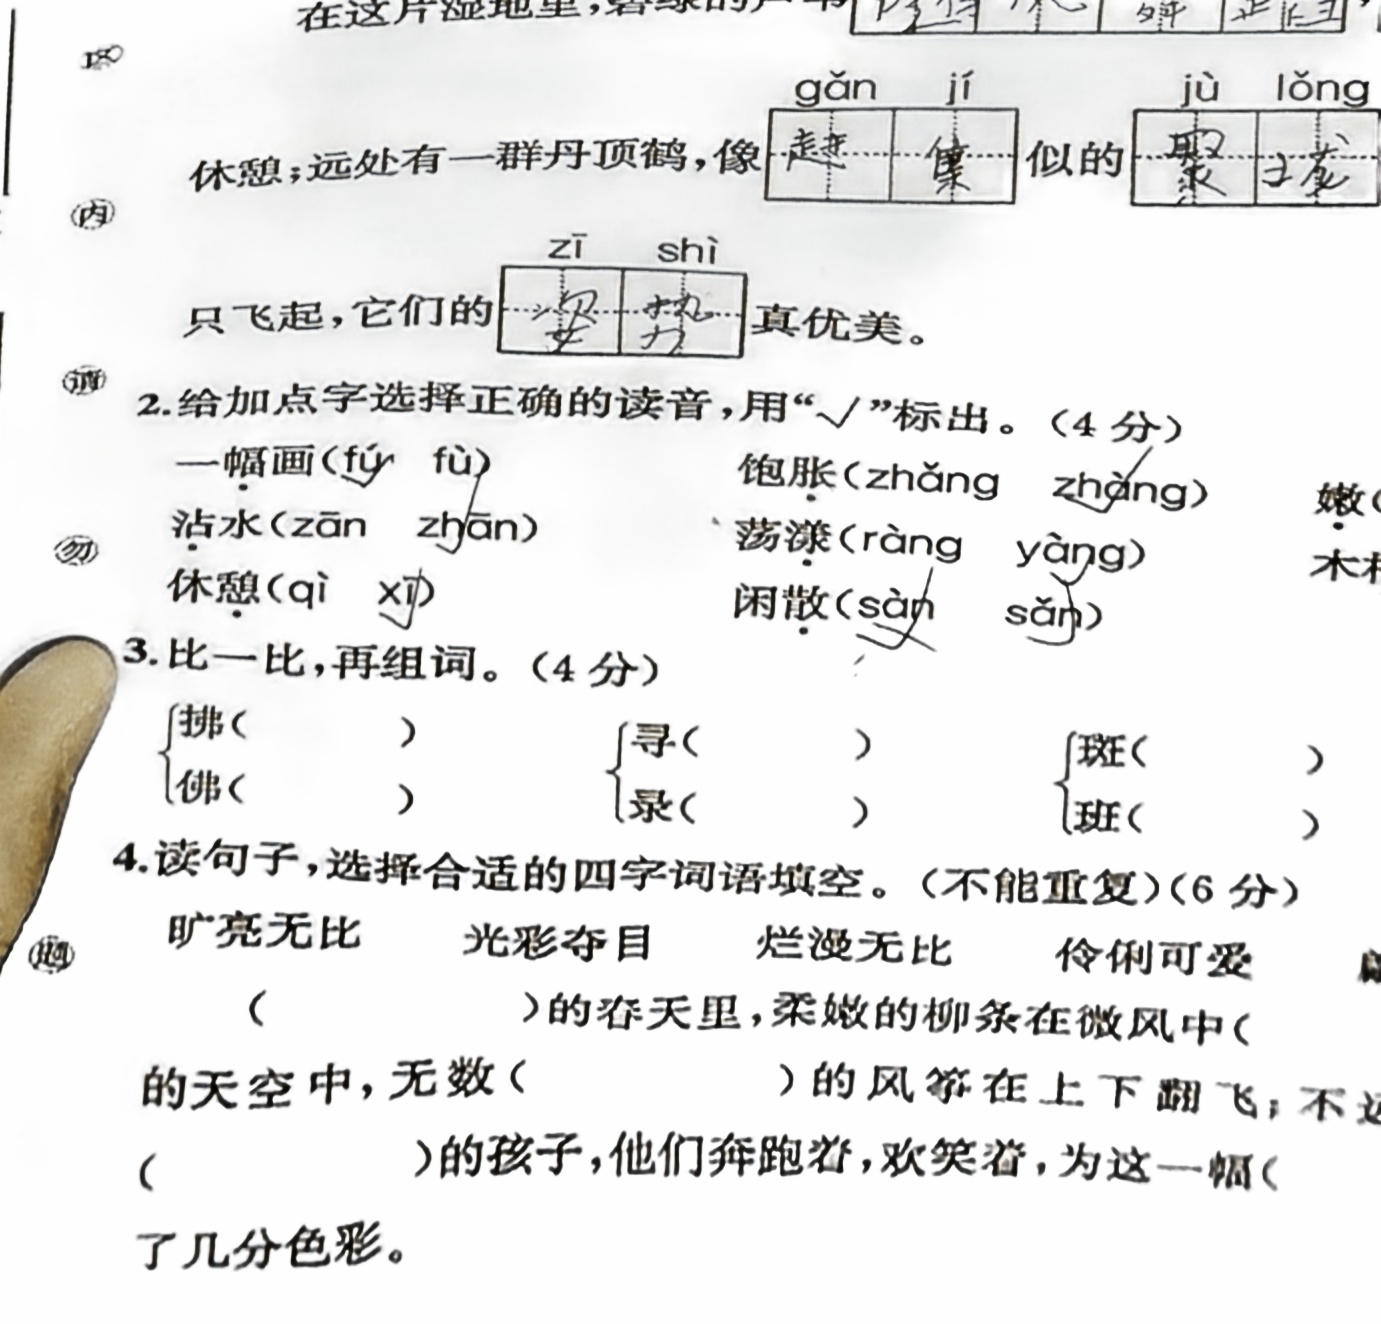 在这片湿地里,碧绿的
gǎn jí jù lǒng
休憩;远处有一群丹顶鹤,像赶集似的聚拢
zī shì
只飞起,它们的姿势真优美。
2.给加点字选择正确的读音,用“√”标出。(4 分)
一幅画(fú fù) 饱胀(zhǎng zhàng) 嫩(
沾水(zān zhān) 荡漾(ràng yàng) 木
休憩(qì xī) 闲散(sàn sǎn)
3.比一比,再组词。(4 分)
拂( ) 寻( ) 斑( )
佛( ) 录( ) 班( )
4.读句子,选择合适的四字词语填空。(不能重复)(6 分)
旷亮无比 光彩夺目 烂漫无比 伶俐可爱
( )的春天里,柔嫩的柳条在微风中(
的天空中,无数( )的风筝在上下翻飞;不远
( )的孩子,他们奔跑着,欢笑着,为这一幅(
了几分色彩。